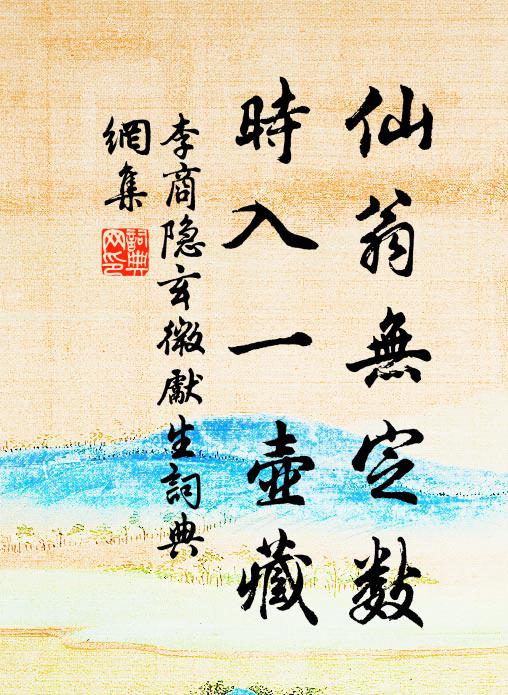 仙翁無定數
時入一壺藏
李商隐玄微獻生詞典
網集
詞典
網印